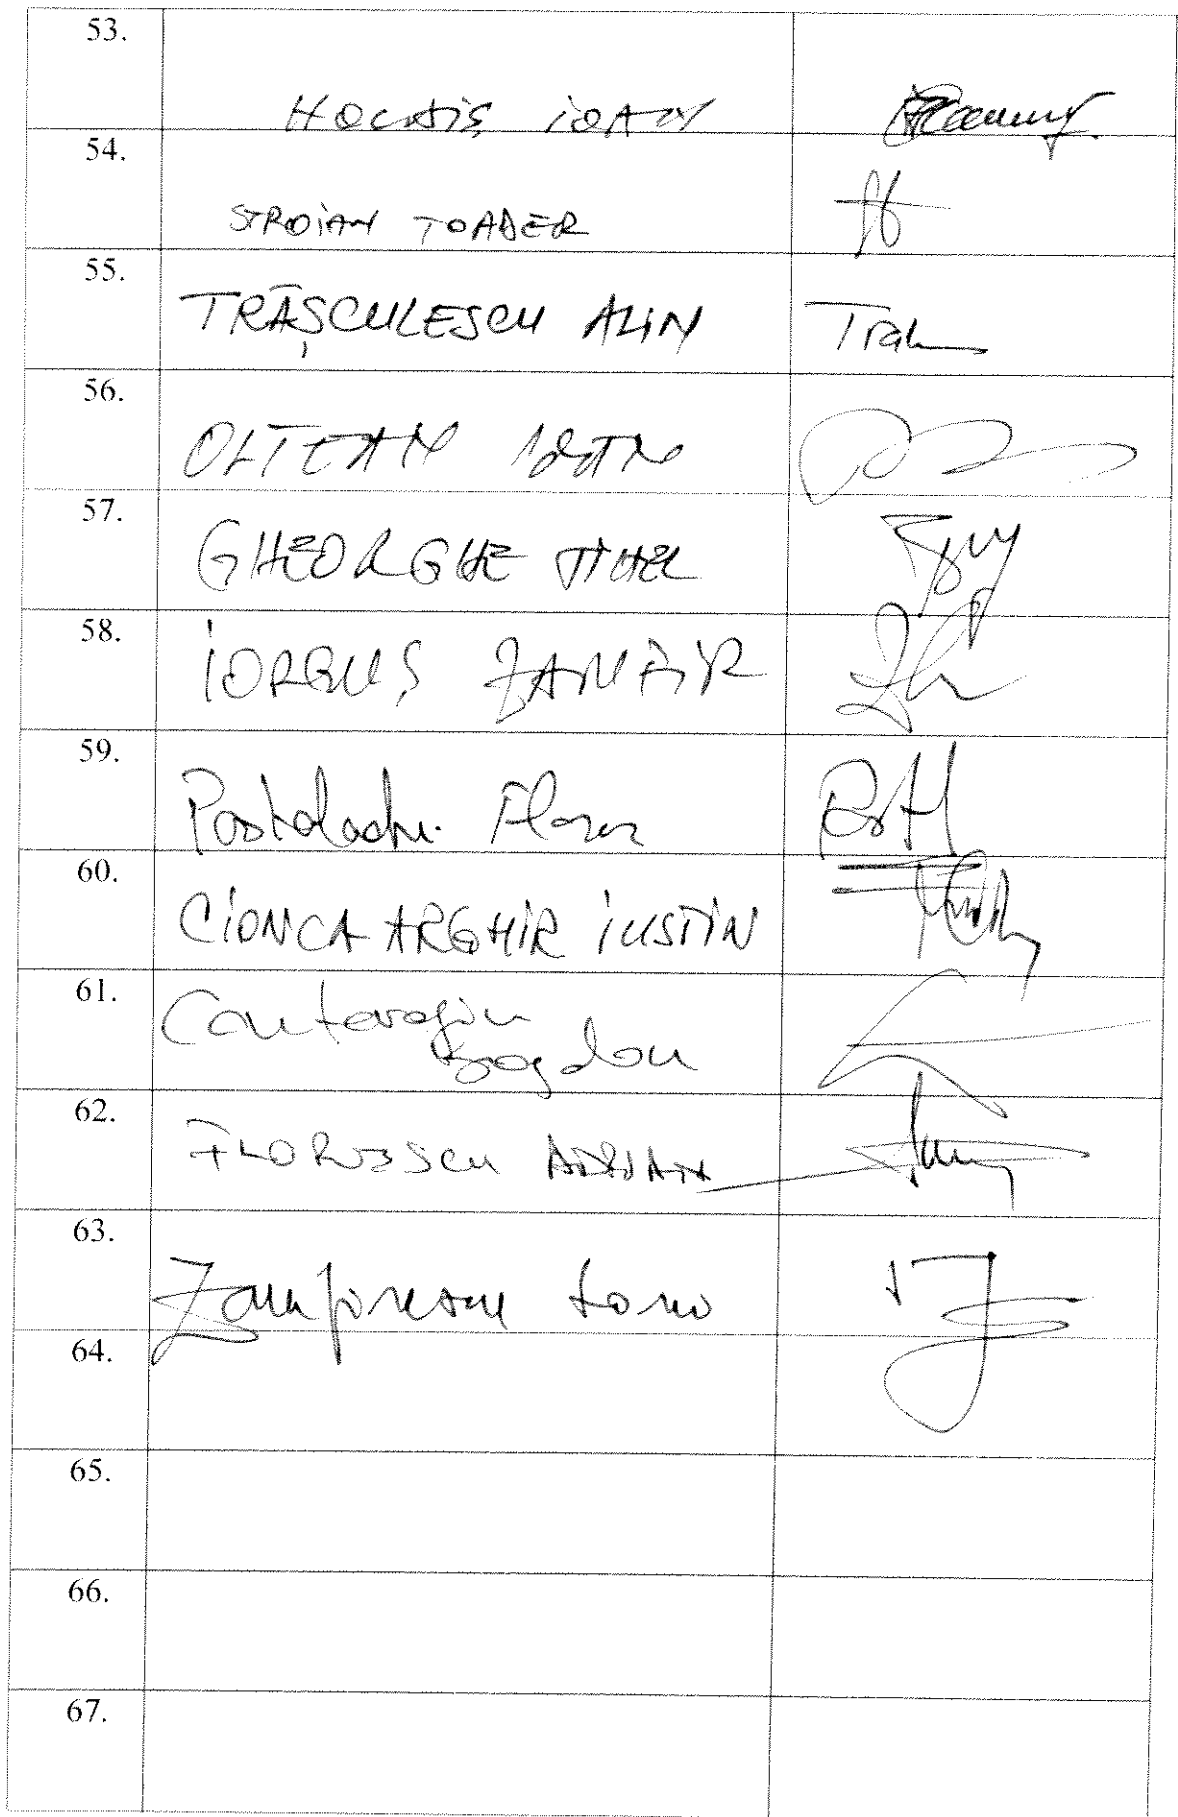 53.
HOLDIȘ IOAN
54.
STROIAN TOADER
55.
TRĂȘCULESCU ALIN
56.
OLTEAN IOAN
57.
GHEORGHE TINEL
58.
IORGUȘ ZANFIR
59.
Postolachi Florin
60.
CIONCA ARGHIR IUSTIN
61.
Cantaragiu
Bogdan
62.
FLORESCU ADRIAN
63.
Zamfirescu Sorin
64.
65.
66.
67.